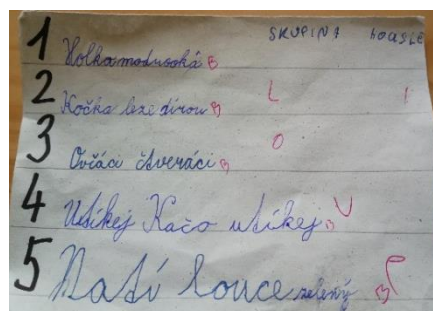 SKUPINA HOUSLE
1 Holka modrooká
2 Kočka leze dírou L I
3 Ovčáci čtveráci O
4 Utíkej Káčo utíkej V
5 Na tý louce zelený